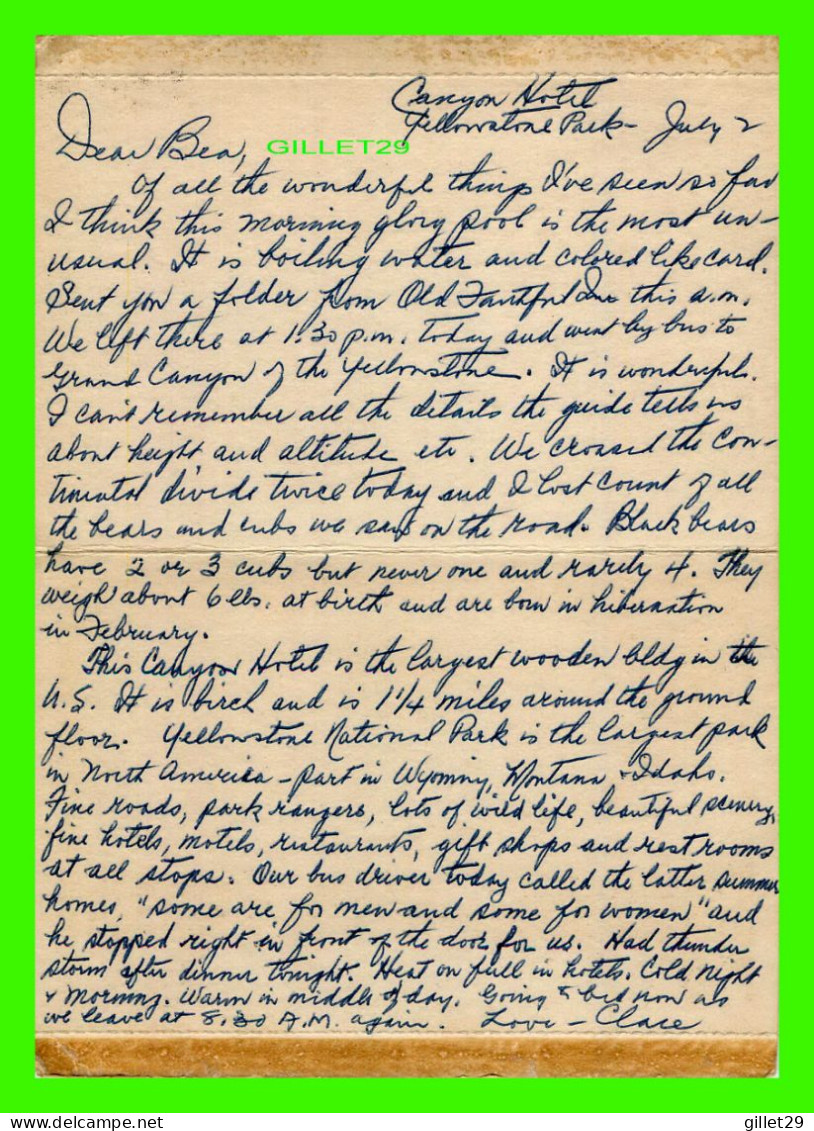 Canyon Hotel
Yellowstone Park - July 2
Dear Bea,
GILLET29
Of all the wonderful things I've seen so far
I think this morning glory pool is the most un-
usual. It is boiling water and colored like card.
Sent you a folder from Old Faithful Inn this a.m.
We left there at 1:30 p.m. today and went by bus to
Grand Canyon of the Yellowstone. It is wonderful.
I can't remember all the details the guide tells us
about height and altitude etc. We crossed the con-
tinental divide twice today and I lost count of all
the bears and cubs we saw on the road. Black bears
have 2 or 3 cubs but never one and rarely 4. They
weigh about 6 lbs. at birth and are born in hibernation
in February.
This Canyon Hotel is the largest wooden bldg in the
U.S. It is birch and is 1 1/4 miles around the ground
floor. Yellowstone National Park is the largest park
in North America - part in Wyoming, Montana & Idaho.
Fine roads, park rangers, lots of wild life, beautiful scenery,
fine hotels, motels, restaurants, gift shops and rest rooms
at all stops. Our bus driver today called the latter summer
homes, "some are for men and some for women" and
he stopped right in front of the door for us. Had thunder
storm after dinner tonight. Heat on full in hotels. Cold night
& morning. Warm in middle of day. Going to bed now as
we leave at 8:30 A.M. again. Love - Clare
gillet29